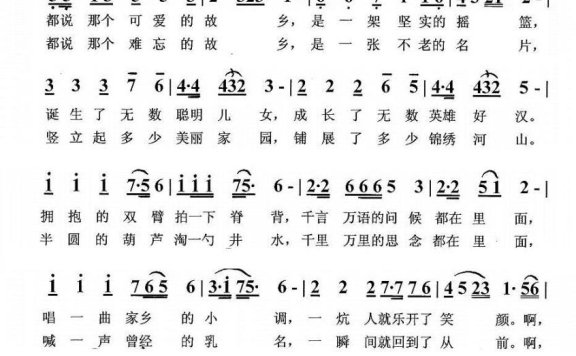 都说那个可爱的故乡，是一架坚实的摇篮，
都说那个难忘的故乡，是一张不老的名片，
3 3 3 7 6 | 4·4 432 3 - | 2 2 2 6 5 | 4·4 432 5 - |
诞生了无数聪明儿女，成长了无数英雄好汉。
竖立起多少美丽家园，铺展了多少锦绣河山。
i i i 7·5 6 | i i i 75· 6 - | 2·2 6 6 6 5 3 | 2·2 51 2 - |
拥抱的双臂拍一下脊背，千言万语的问候都在里面，
半圆的葫芦淘一勺井水，千里万里的思念都在里面，
i i i 765 6 | 3·i 75· 6 - | 2 2 2·7 7 6 | 4 5 23 1· 56 |
唱一曲家乡的小调，一炕人就乐开了笑颜。啊，
喊一声曾经的乳名，一瞬间就回到了从前。啊，